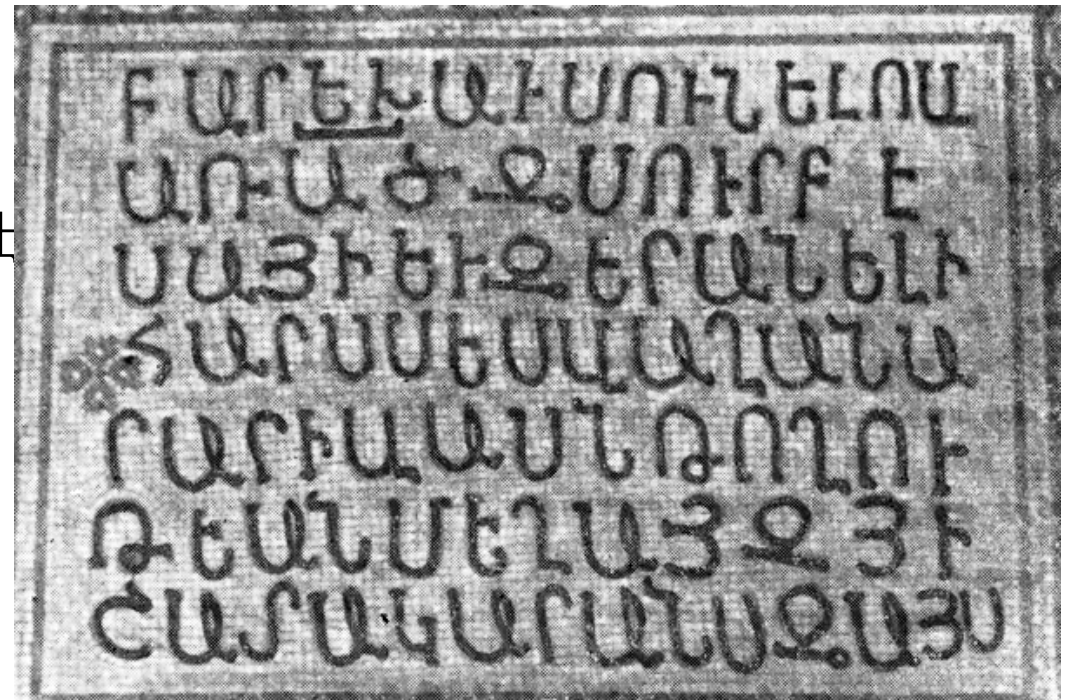 ԲԱՐԵԽԱՒՍՈՒՆԵԼՈՎ
ԱՌԱԾԶՍՈՒՐԲԵ
ՍԱՅԻԵՒԶԵՐԱՆԵԼԻ
ՀԱՐՍՍԵՍՎԱՂԱՆԱ
ՐԱՐԻՎԱՍՆԹՈՂՈՒ
ԹԵԱՆՄԵՂԱՅԶՅԻ
ՇԱՏԱԿԱՐԱՆՍԶԱՅՍ